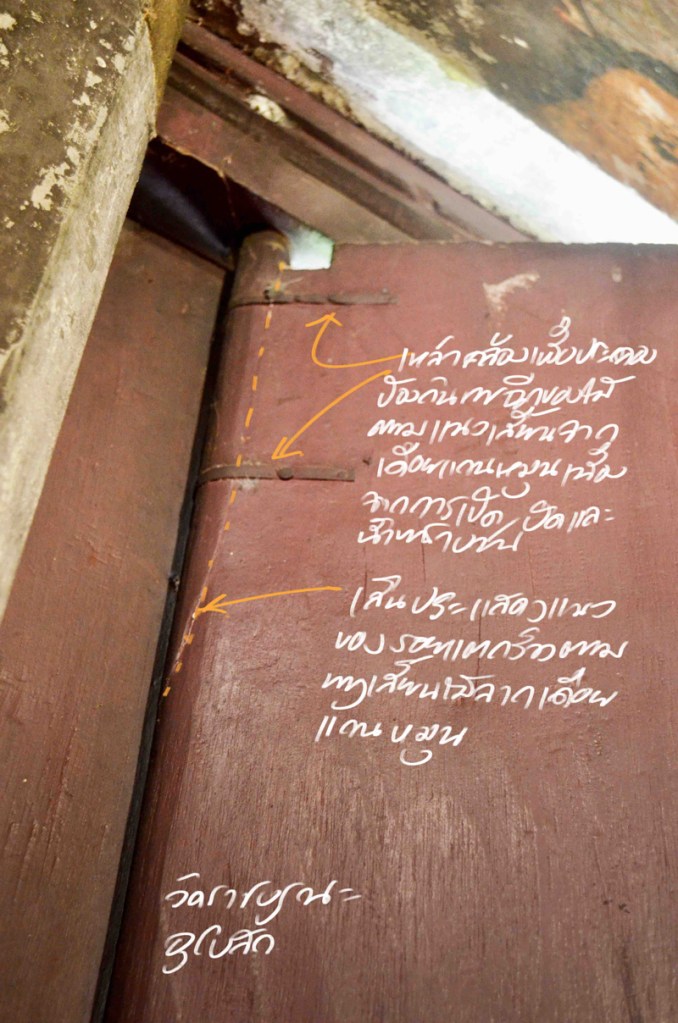 เหล็กคล้องเพื่อประคอง
ป้องกันการฉีกของไม้
ตามแนวเสี้ยนจาก
เดือยแกนหมุนเนื่อง
จากการเปิด ปิดและ
น้ำหนักบาน
เส้นประแสดงแนว
ของรอยแตกร้าวตาม
ทางเสี้ยนไม้จากเดือย
แกนหมุน
วัดราชบูรณะ
อุโบสถ